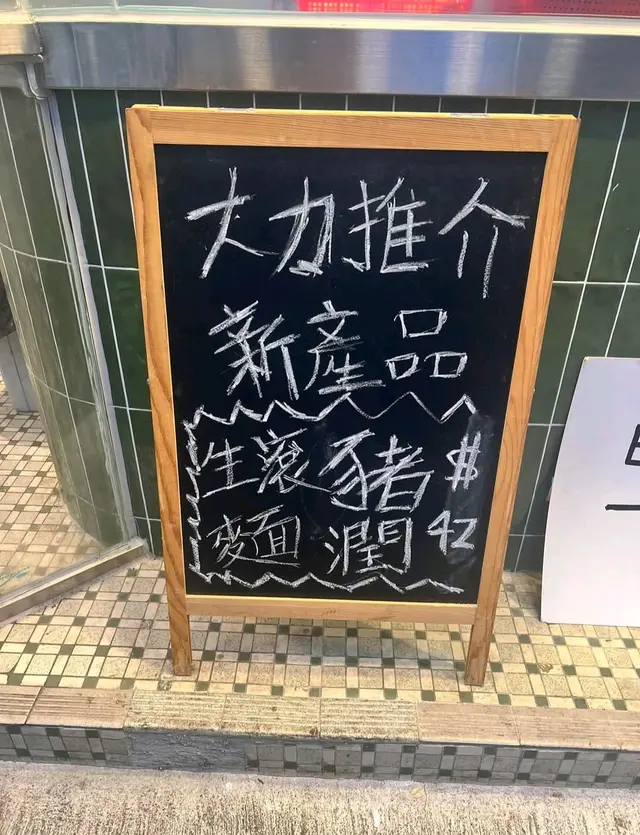 大力推介
新產品
生滾豬 $
麵潤 42